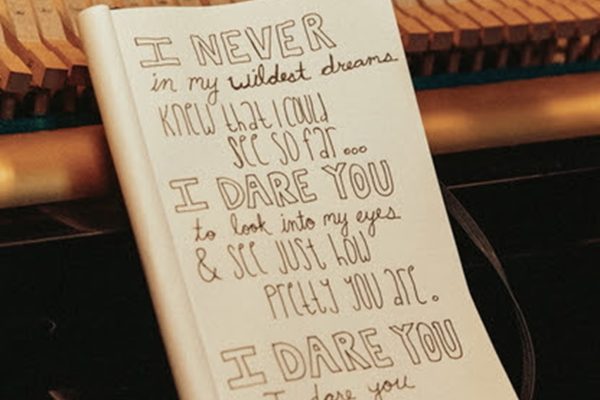 I NEVER
in my wildest dreams
KNEW that I COULD
SEE SO far...
I DARE YOU
to look into my eyes
& SEE JUST HOW
PRETTY YOU are.
I DARE YOU
I dare you